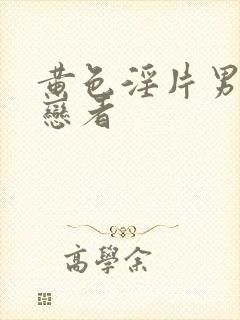 黄色淫片男
戀看
高學余